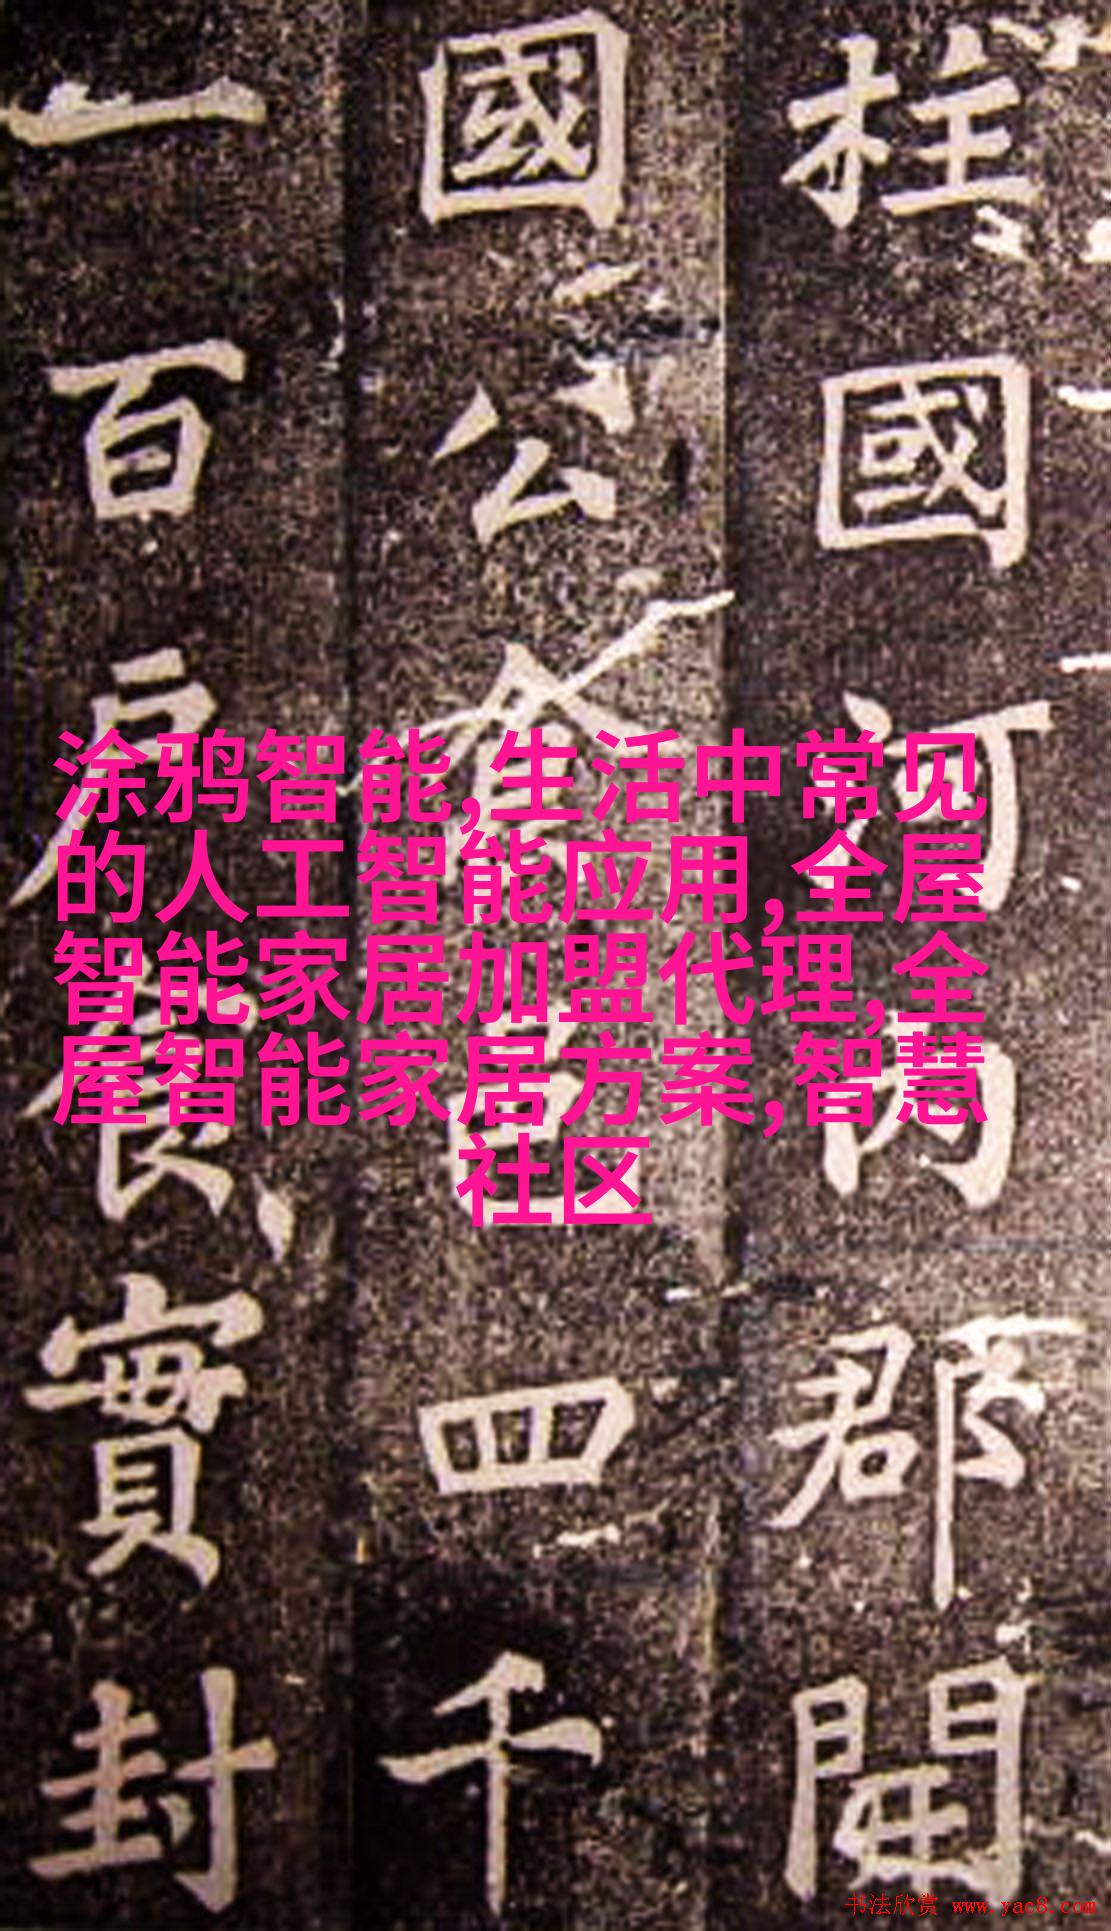 柱國河內郡開
國公食邑四千
一百戶食實封
涂鸦智能,生活中常见
的人工智能应用,全屋
智能家居加盟代理,全
屋智能家居方案,智慧
社区
书法欣赏 www.yac8.com